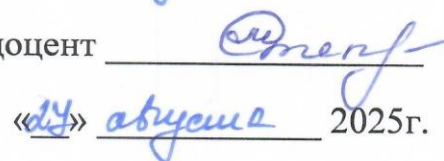 доцент
«27» августа 2025г.